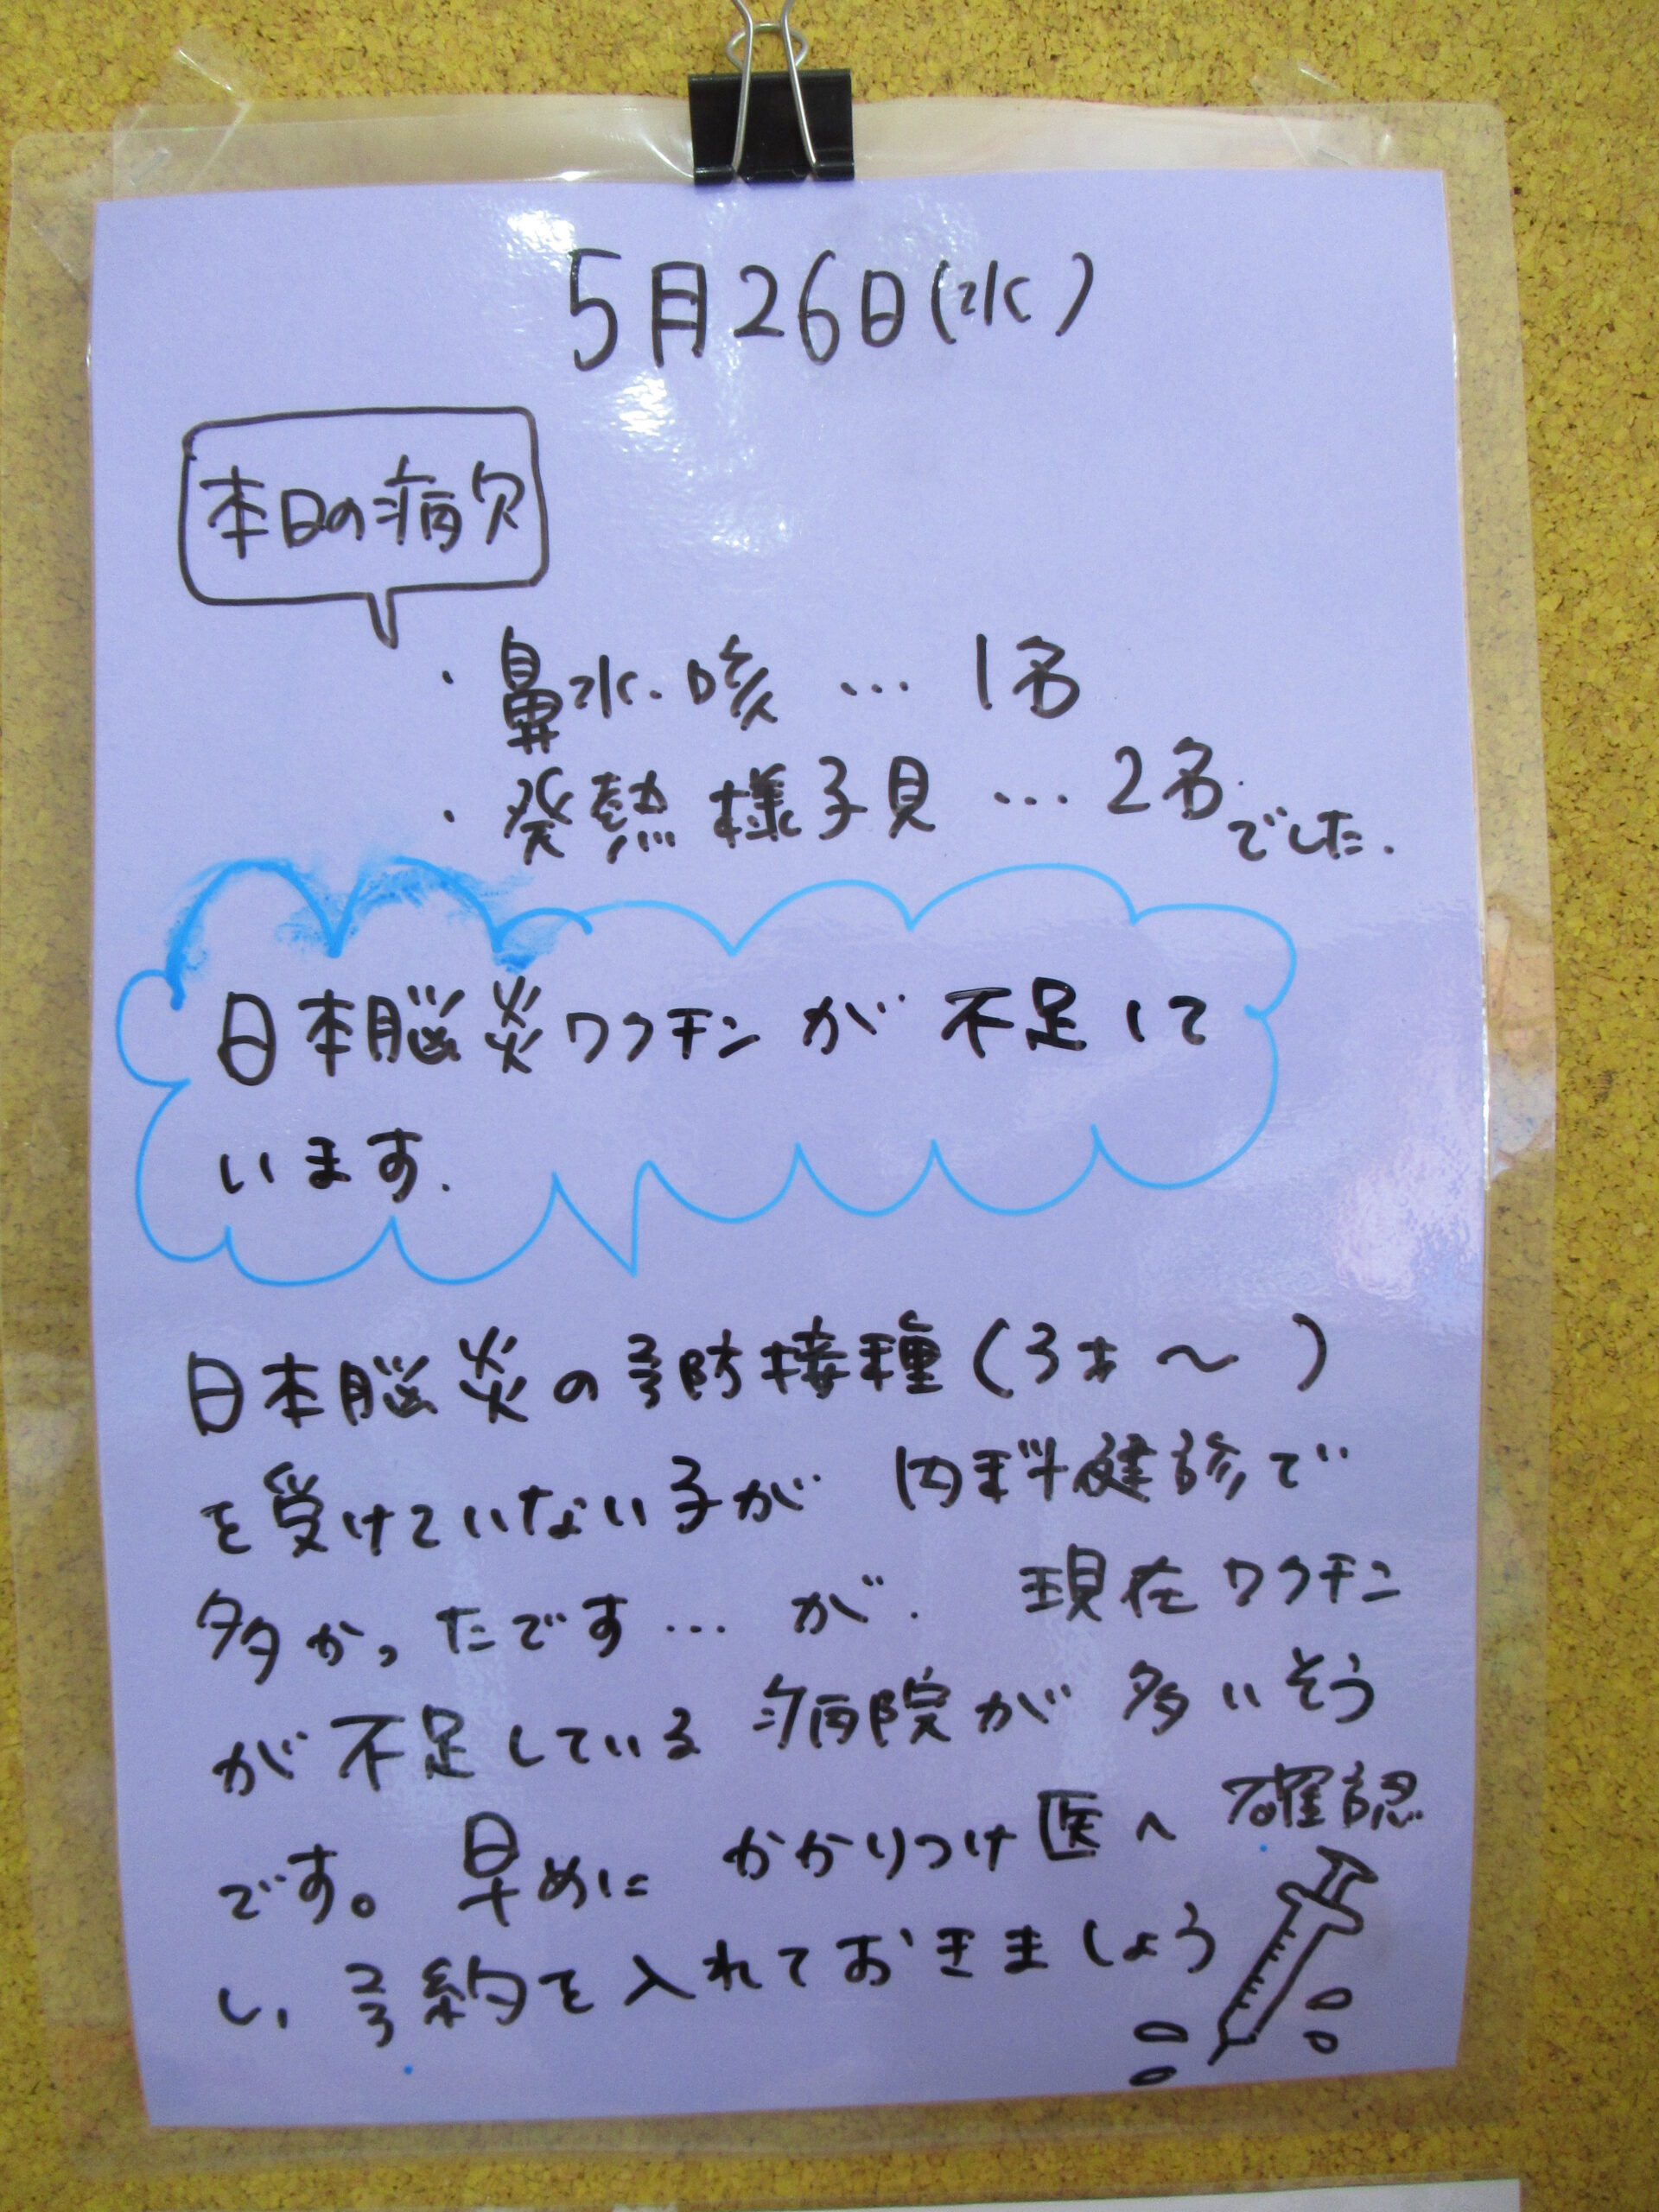 5月26日(水)
本日の病欠
・鼻水、咳 … 1名
・発熱様子見 … 2名
でした.
日本脳炎ワクチンが不足して
います.
日本脳炎の予防接種(3才〜 )
を受けていない子が 内科健診で
多かったです… が、 現在ワクチン
が不足している 病院が 多いそう
です。早めに かかりつけ医へ 確認
し、予約を入れておきましょう